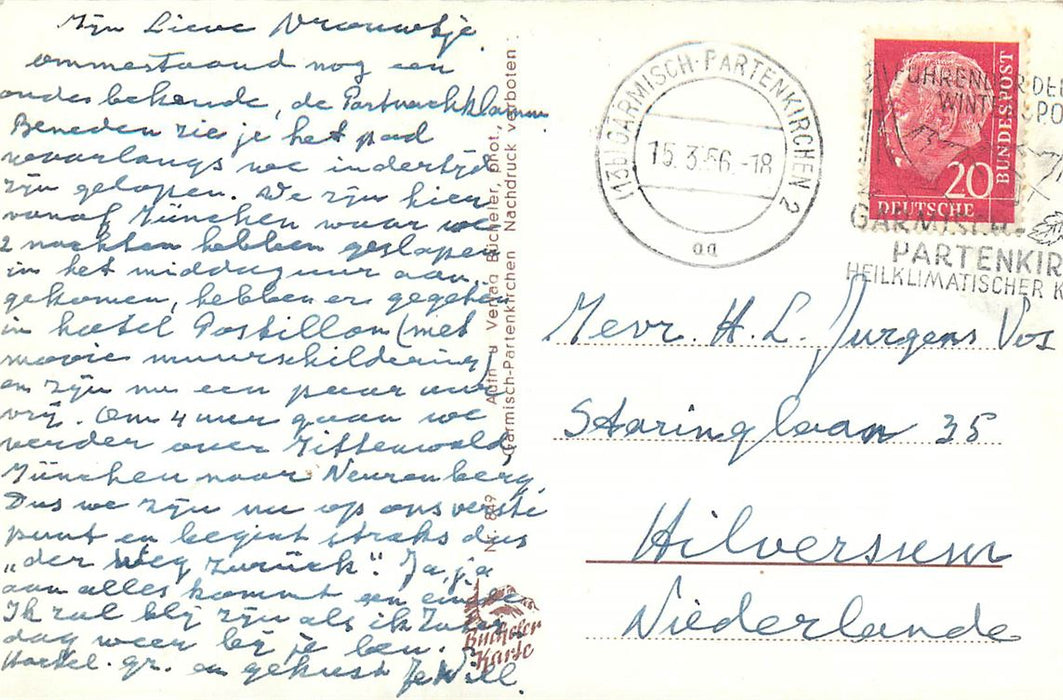 Mijn Lieve Vrouwtje.
ommestaand nog een
oudes bekende, de Partnachklamm
Beneden zie je het pad
waarlangs we indertijd
zijn gelopen. We zijn hier
vanaf München waar we
2 nachten hebben geslapen
in het middaguur aan
gekomen, hebben er gegeten
in hotel Postillon (met
mooie muurschildering)
en zijn nu een paar uur
vrij. Om 4 uur gaan we
verder over Mittenwald,
München naar Neurenberg.
Dus we zijn nu op ons verste
punt en begint straks dus
„der Weg zurück". Ja, ja
aan alles komt een einde
Ik zal blij zijn als ik Zater
dag weer bij je ben.
Hartel. gr. en gekust Je Will.
Nr. 849 Aufn. u. Verlag Bücheler, phot.,
Garmisch-Partenkirchen Nachdruck verboten
Bücheler
Karte
(13b) GARMISCH-PARTENKIRCHEN 2
15.3.56.-18
FÜHRENDER DE
WINT SPO
GARMISCH-
PARTENKIR
HEILKLIMATISCHER K
DEUTSCHE
BUNDESPOST
20
Mevr. H. L. Jurgens Vos
Staringlaan 35
Hilversum
Niederlande